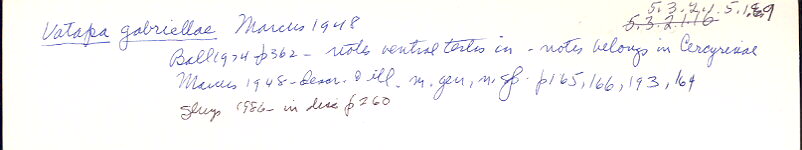 5.3.2.1.5.1.69
Vatapa gabriellae Marcus 1948 5.3.2.1.16
Ball 1974 p362 - notes ventral testes in - notes belongs in Cercyrinae
Marcus 1948 - descr. & ill. n. gen, n. sp. p165, 166, 193, 164
Sluys 1986 - in disc p260